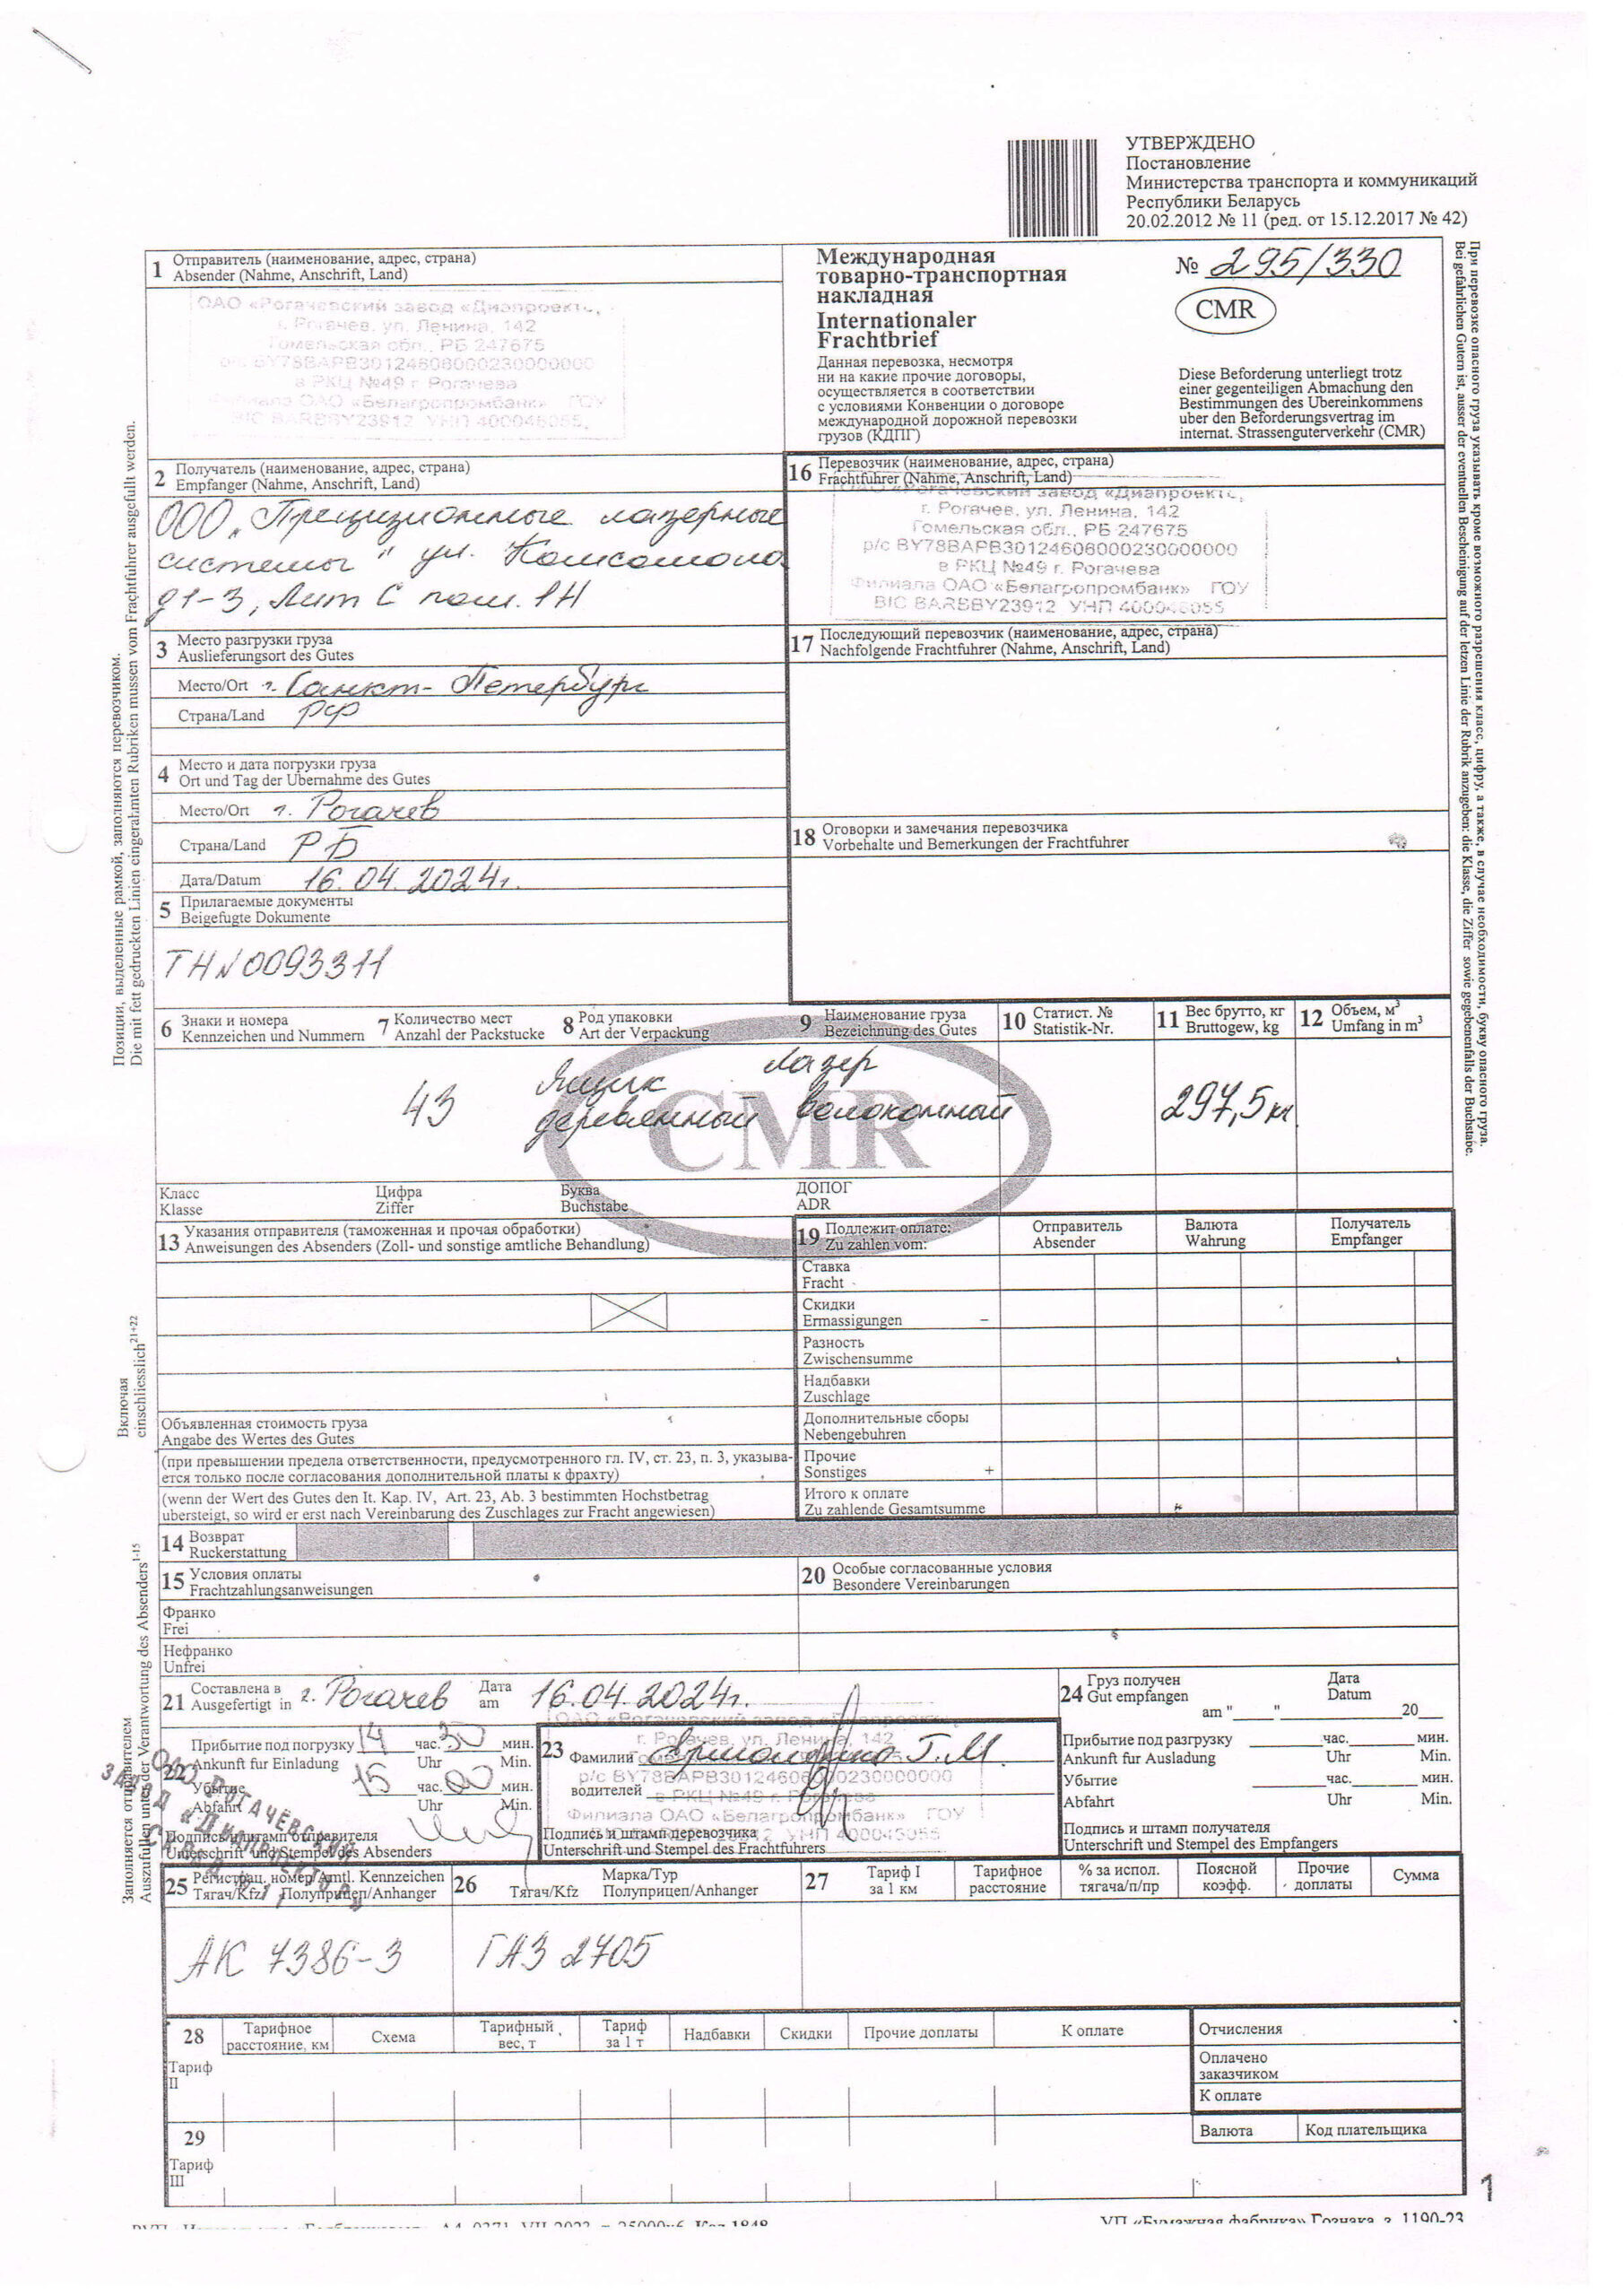 УТВЕРЖДЕНО
Постановление
Министерства транспорта и коммуникаций
Республики Беларусь
20.02.2012 № 11 (ред. от 15.12.2017 № 42)
1 Отправитель (наименование, адрес, страна)
Absender (Nahme, Anschrift, Land)
ОАО «Рогачевский завод «Диапроект»,
г. Рогачев, ул. Ленина, 142
Гомельская обл., РБ 247675
р/с BY78BAPB30124606000230000000
в РКЦ №49 г. Рогачева
Филиала ОАО «Белагропромбанк» ГОУ
BIC BARBBY23912 УНП 400046055,
Международная
товарно-транспортная
накладная
Internationaler
Frachtbrief
№ 295/330
CMR
Данная перевозка, несмотря
ни на какие прочие договоры,
осуществляется в соответствии
с условиями Конвенции о договоре
международной дорожной перевозки
грузов (КДПГ)
Diese Beforderung unterliegt trotz
einer gegenteiligen Abmachung den
Bestimmungen des Ubereinkommens
uber den Beforderungsvertrag im
internat. Strassenguterverkehr (CMR)
2 Получатель (наименование, адрес, страна)
Empfanger (Nahme, Anschrift, Land)
ООО "Прецизионные лазерные
системы" ул. Комсомола
д1-3, Лит С пом. 1Н
16 Перевозчик (наименование, адрес, страна)
Frachtfuhrer (Nahme, Anschrift, Land)
ОАО «Рогачевский завод «Диапроект»,
г. Рогачев, ул. Ленина, 142
Гомельская обл., РБ 247675
р/с BY78BAPB30124606000230000000
в РКЦ №49 г. Рогачева
Филиала ОАО «Белагропромбанк» ГОУ
BIC BARBBY23912 УНП 400046055
3 Место разгрузки груза
Auslieferungsort des Gutes
Место/Ort г. Санкт-Петербург
Страна/Land РФ
17 Последующий перевозчик (наименование, адрес, страна)
Nachfolgende Frachtfuhrer (Nahme, Anschrift, Land)
4 Место и дата погрузки груза
Ort und Tag der Ubernahme des Gutes
Место/Ort г. Рогачев
Страна/Land РБ
Дата/Datum 16.04.2024г.
18 Оговорки и замечания перевозчика
Vorbehalte und Bemerkungen der Frachtfuhrer
5 Прилагаемые документы
Beigefugte Dokumente
ТН №0093311
6 Знаки и номера
Kennzeichen und Nummern
7 Количество мест
Anzahl der Packstucke
8 Род упаковки
Art der Verpackung
9 Наименование груза
Bezeichnung des Gutes
10 Статист. №
Statistik-Nr.
11 Вес брутто, кг
Bruttogew, kg
12 Объем, м3
Umfang in m3
43
Ящик
деревянный
лазер
волоконный
297,5 кг
CMR
Класс
Klasse
Цифра
Ziffer
Буква
Buchstabe
ДОПОГ
ADR
13 Указания отправителя (таможенная и прочая обработки)
Anweisungen des Absenders (Zoll- und sonstige amtliche Behandlung)
Объявленная стоимость груза
Angabe des Wertes des Gutes
(при превышении предела ответственности, предусмотренного гл. IV, ст. 23, п. 3, указыва-
ется только после согласования дополнительной платы к фрахту)
(wenn der Wert des Gutes den It. Kap. IV, Art. 23, Ab. 3 bestimmten Hochstbetrag
ubersteigt, so wird er erst nach Vereinbarung des Zuschlages zur Fracht angewiesen)
19 Подлежит оплате:
Zu zahlen vom:
Отправитель
Absender
Валюта
Wahrung
Получатель
Empfanger
Ставка
Fracht
Скидки
Ermassigungen –
Разность
Zwischensumme
Надбавки
Zuschlage
Дополнительные сборы
Nebengebuhren
Прочие
Sonstiges +
Итого к оплате
Zu zahlende Gesamtsumme
14 Возврат
Ruckerstattung
15 Условия оплаты
Frachtzahlungsanweisungen
Франко
Frei
Нефранко
Unfrei
20 Особые согласованные условия
Besondere Vereinbarungen
21 Составлена в г. Рогачев Дата 16.04.2024г.
Ausgefertigt in am
22 Прибытие под погрузку 14 час. 30 мин.
Ankunft fur Einladung Uhr Min.
Убытие 15 час. 00 мин.
Abfahrt Uhr Min.
Подпись и штамп отправителя
Unterschrift und Stempel des Absenders
ОАО «РОГАЧЕВСКИЙ
ЗАВОД «ДИАПРОЕКТОР»
СКЛАД № 11
23 Фамилии
водителей
ОАО «Рогачевский завод «Диапроект»,
г. Рогачев, ул. Ленина, 142
р/с BY78BAPB30124606000230000000
в РКЦ №49 г. Рогачева
Филиала ОАО «Белагропромбанк» ГОУ
УНП 400046055
Подпись и штамп перевозчика
Unterschrift und Stempel des Frachtfuhrers
24 Груз получен Дата
Gut empfangen Datum
am "____" ________ 20__
Прибытие под разгрузку ____час.____мин.
Ankunft fur Ausladung Uhr Min.
Убытие ____час.____мин.
Abfahrt Uhr Min.
Подпись и штамп получателя
Unterschrift und Stempel des Empfangers
25 Регистрац. номер/Amtl. Kennzeichen
Тягач/Kfz Полуприцеп/Anhanger
АК 7386-3
26 Марка/Typ
Тягач/Kfz Полуприцеп/Anhanger
ГАЗ 2705
27 Тариф I
за 1 км
Тарифное
расстояние
% за испол.
тягача/п/пр
Поясной
коэфф.
Прочие
доплаты
Сумма
28 Тарифное
расстояние, км
Схема
Тарифный
вес, т
Тариф
за 1 т
Надбавки
Скидки
Прочие доплаты
К оплате
Тариф
II
Отчисления
Оплачено
заказчиком
К оплате
29
Тариф
III
Валюта
Код плательщика
1
УП «Бумажная фабрика» Гознака, з. 1190-23
Позиции, выделенные рамкой, заполняются перевозчиком.
Die mit fett gedruckten Linien eingerahmten Rubriken mussen vom Frachtfuhrer ausgefullt werden.
Включая
einschliesslich 21+22
Заполняется отправителем
Auszufullen unter der Verantwortung des Absenders 1-15
При перевозке опасного груза указывать кроме возможного разрешения класс, цифру, а также, в случае необходимости, букву опасного груза.
Bei gefahrlichen Gutern ist, ausser der eventuellen Bescheinigung auf der letzen Linie der Rubrik anzugeben: die Klasse, die Ziffer sowie gegebenenfalls der Buchstabe.